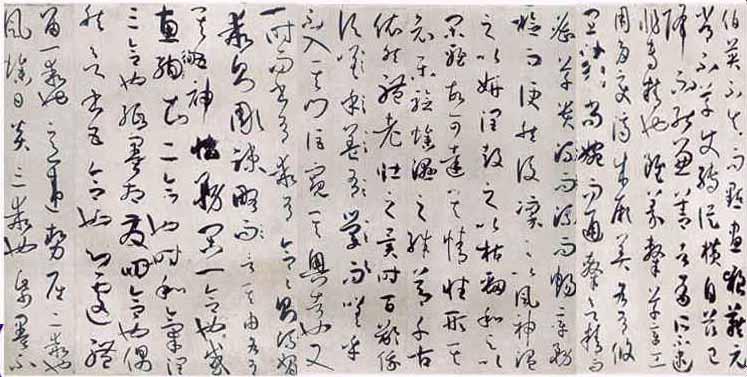 伯英不真而點畫狼藉元
常不草使轉縱橫自茲已
降不能兼善者有所不逮
非專精也雖篆隸草章工
用多變濟成厥美各有攸
宜篆尚婉而通隸欲精而
密草貴流而暢章務
檢而便然後凜之以風神溫
之以妍潤鼓之以枯勁和之以
閑雅故可達其情性形其
哀樂驗燥濕之殊節千古
依然體老壯之異時百齡俄
頃嗟乎
不入其門詎窺其奧者也又
一時而書有乖有合合則流媚
乖則彫疎略言其由各有
其五神怡務閑一合也感
惠徇知二合也時和氣潤
三合也紙墨相發四合也偶
然欲書五合也心遽體
留一乖也意違勢屈二乖也
風燥日炎三乖也紙墨不